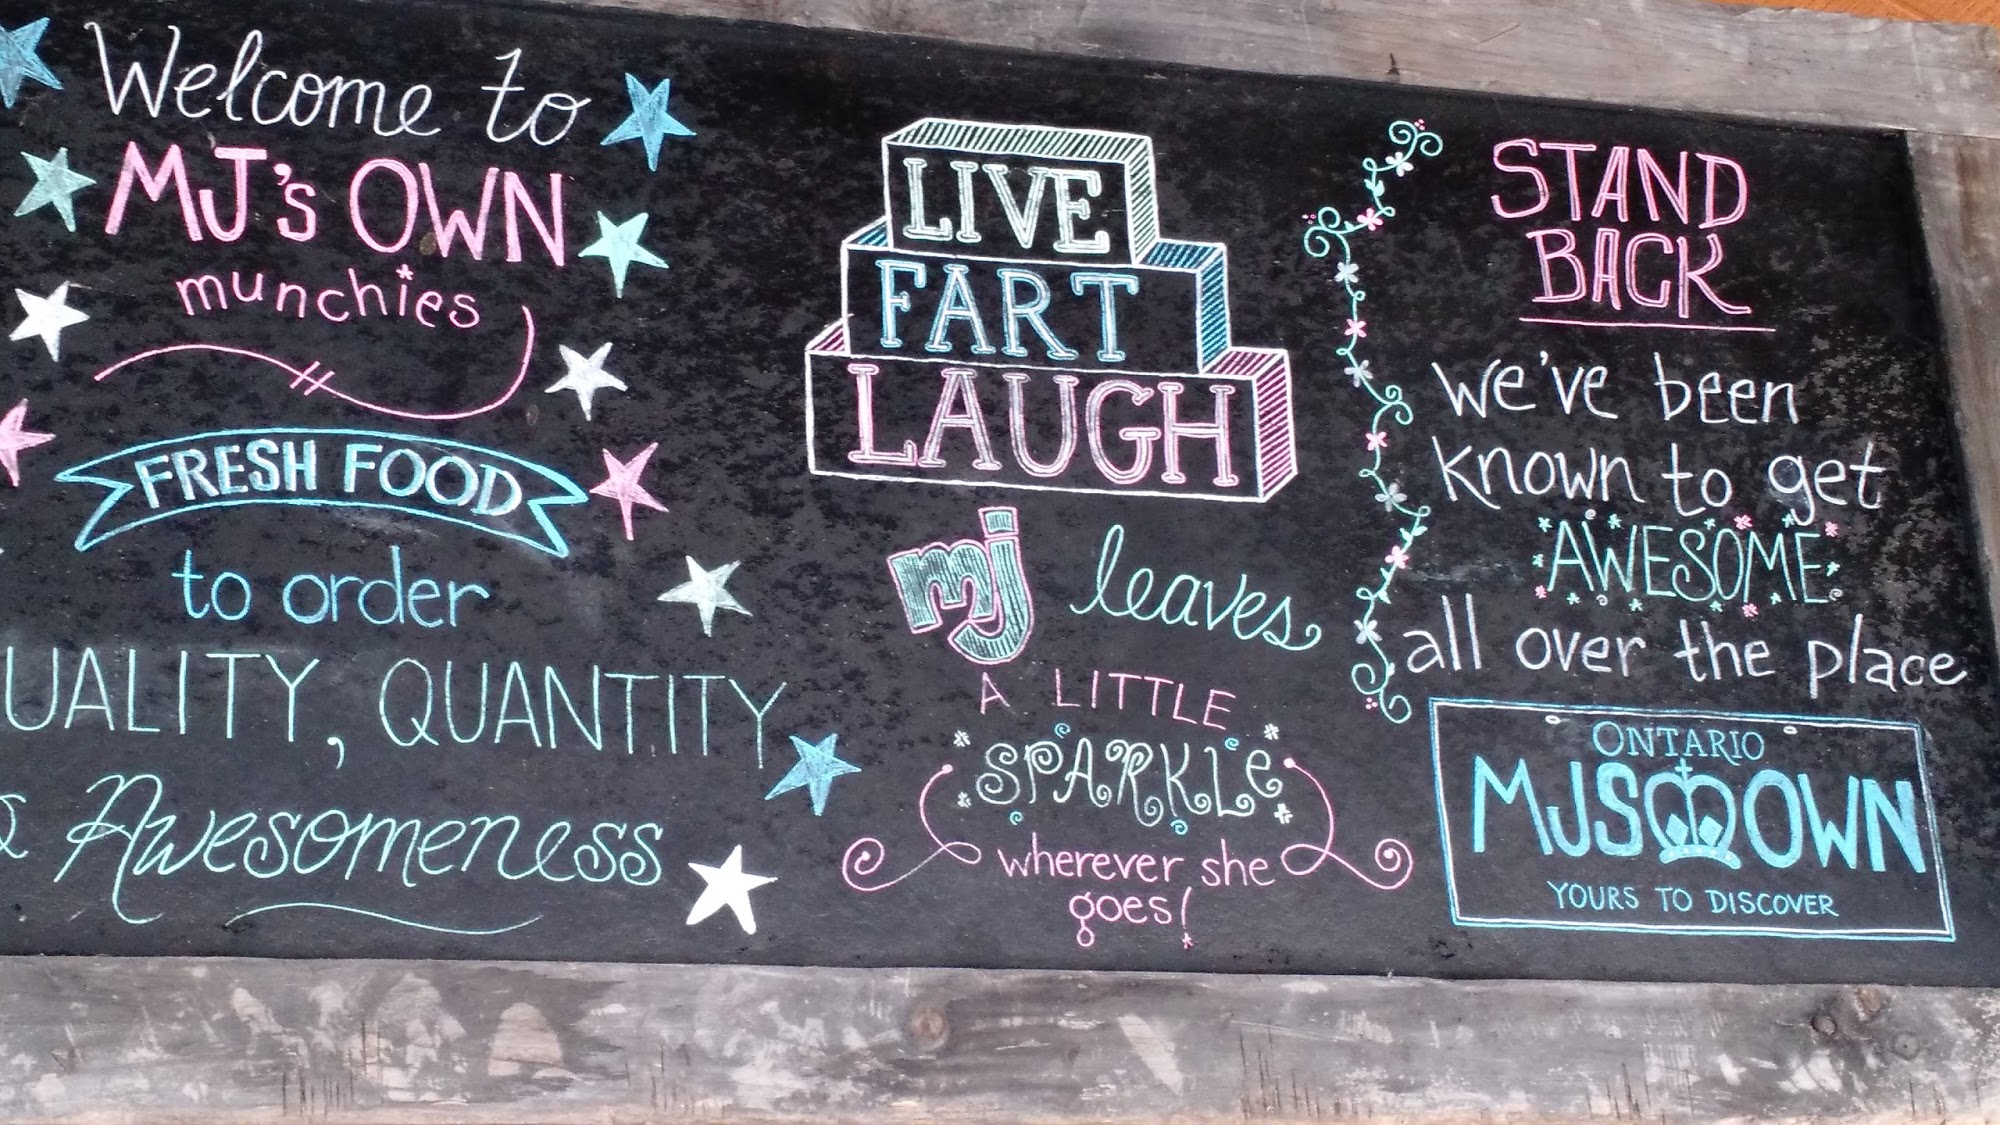 Welcome to
MJ's OWN
munchies
FRESH FOOD
to order
UALITY, QUANTITY
& Awesomeness
LIVE
FART
LAUGH
mj leaves
A LITTLE
SPARKLE
wherever she
goes!
STAND
BACK
we've been
known to get
AWESOME
all over the place
ONTARIO
MJS OWN
YOURS TO DISCOVER